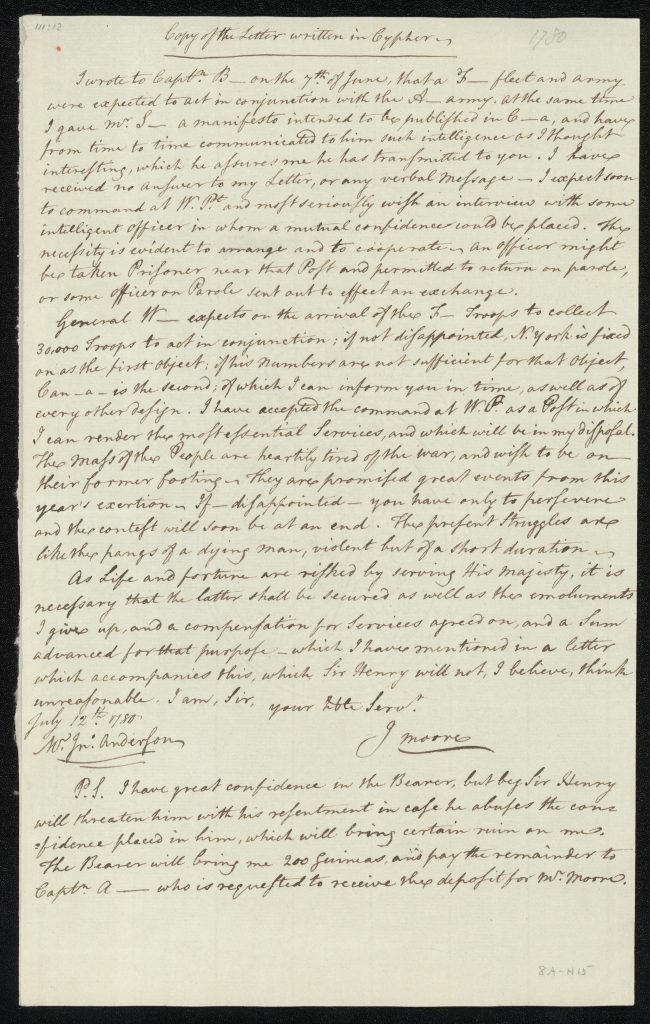 111:12
Copy of the Letter written in Cypher
1780
I wrote to Captn. B— on the 7th. of June, that a F— fleet and army
were expected to act in conjunction with the A— army. at the same time
I gave Mr. S— a manifesto intended to be published in C—a, and have
from time to time communicated to him such intelligence as I thought
interesting, which he assures me he has transmitted to you. I have
received no answer to my Letter, or any verbal Message — I expect soon
to command at W. Pt. and most seriously wish an interview with some
intelligent officer in whom a mutual confidence could be placed. The
necessity is evident to arrange and to cooperate — an officer might
be taken Prisoner near that Post and permitted to return on parole,
or some officer on Parole sent out to effect an exchange.
General W— expects on the arrival of the F— Troops to collect
30,000 Troops to act in conjunction; if not disappointed, N. York is fixed
on as the first Object; if his numbers are not sufficient for that Object,
Can—a— is the second; of which I can inform you in time, as well as of
every other design. I have accepted the command at W. P. as a Post in which
I can render the most essential Services, and which will be in my disposal.
The mass of the People are heartily tired of the war, and wish to be on
their former footing — They are promised great events from this
year's exertion — If — disappointed — you have only to persevere
and the contest will soon be at an end. The present Struggles are
like the pangs of a dying man, violent but of a short duration —
As Life and fortune are risked by serving His Majesty, it is
necessary that the latter shall be secured as well as the emoluments
I give up, and a compensation for Services agreed on, and a Sum
advanced for that purpose — which I have mentioned in a letter
which accompanies this, which Sir Henry will not, I believe, think
unreasonable. I am, Sir, your Hble Servt.
July 12th. 1780
Mr. Jno. Anderson
J Moore
P.S. I have great confidence in the Bearer, but beg Sir Henry
will threaten him with his resentment in case he abuses the con=
=fidence placed in him, which will bring certain ruin on me.
The Bearer will bring me 200 Guineas, and pay the remainder to
Captn. A— who is requested to receive the deposit for Mr. Moore.
8A-N15